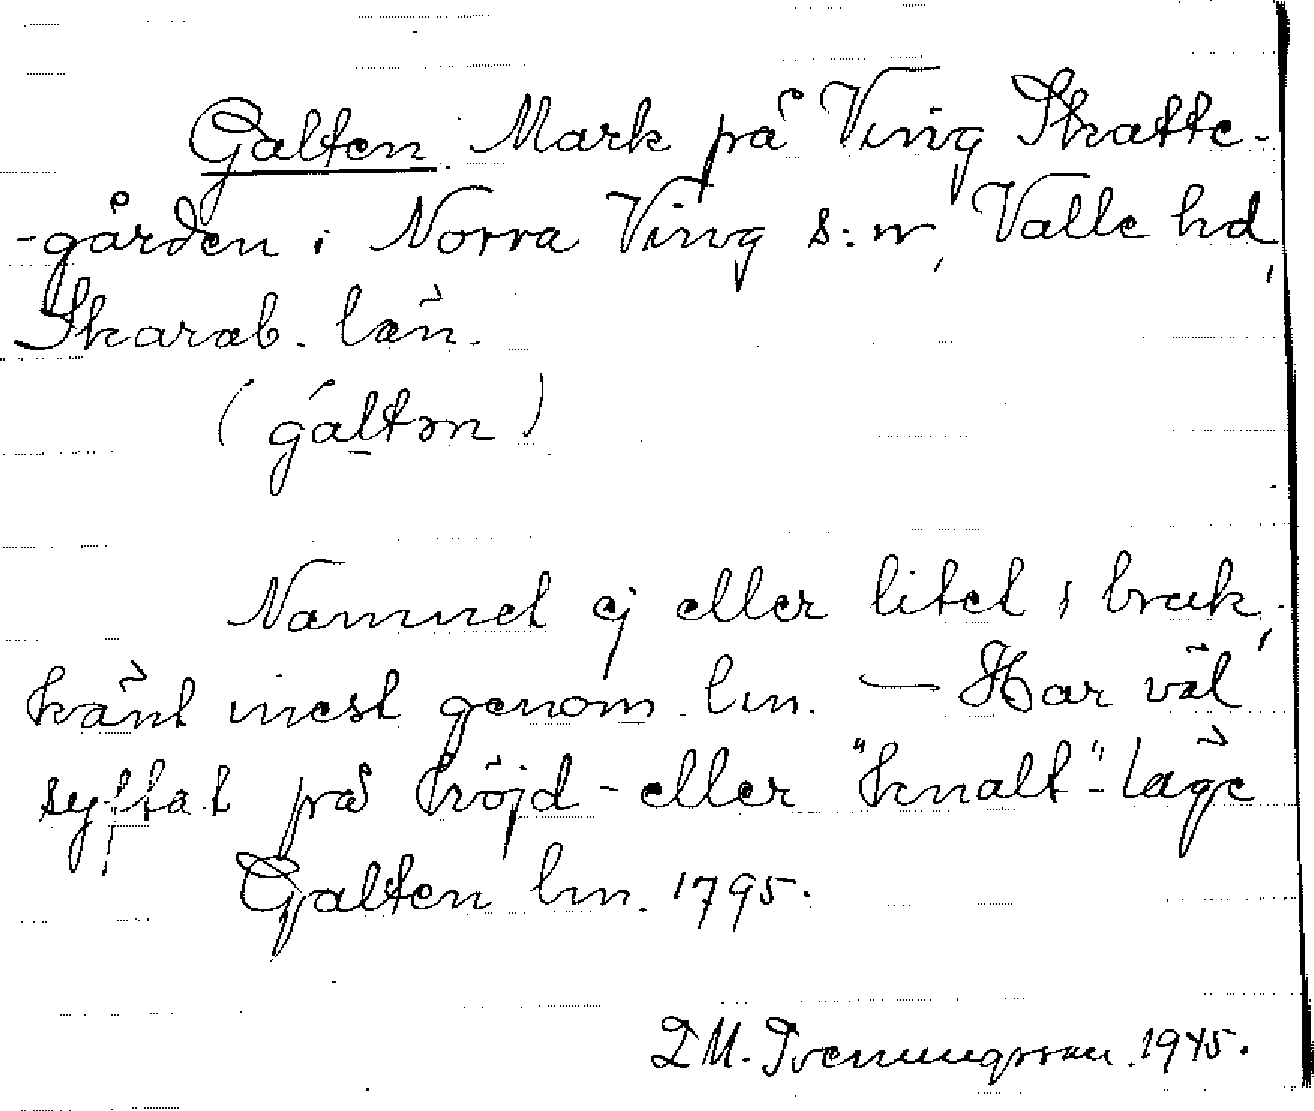 Galten. Mark på Ving Skatte-
-gården i Norra Ving s:n, Valle hd,
Skarab. län.
(gáltən)
Namnet ej eller litet i bruk,
känt mest genom lm. — Har väl
syftat på höjd- eller "knalt"-läge
Galten lm. 1795.
1945.